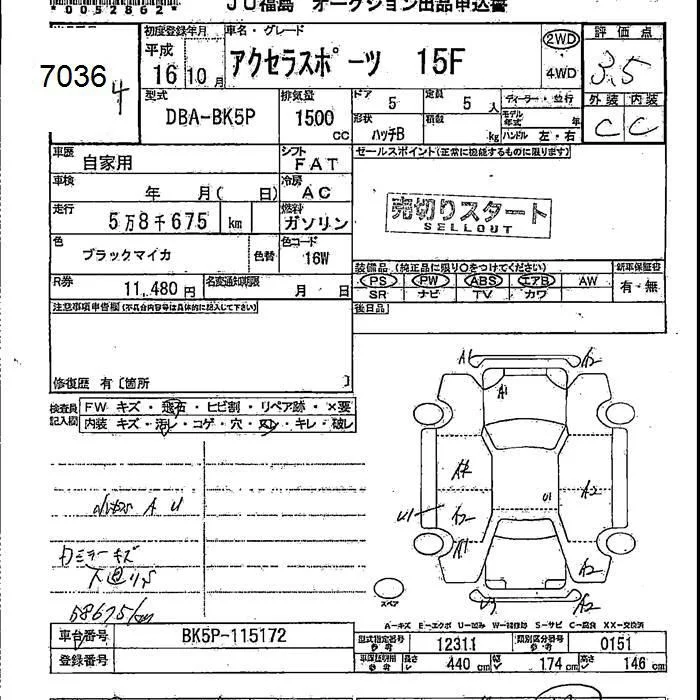 *0052862*
JU福島 オークション出品申込書
7036
4
初度登録年月
車名・グレード
平成
16 10月
アクセラスポーツ 15F
2WD
4WD
評価点
3.5
外装 内装
C C
型式
DBA-BK5P
排気量
1500 cc
ドア 5
定員 5 人
形状 ハッチB
積載 kg
ディーラー・並行
モデル年式 年
ハンドル 左・右
車歴 自家用
シフト FAT
セールスポイント(正常に機能するものに限ります)
車検 年 月( 日)
冷房 AC
走行 5万8千675 km
燃料 ガソリン
売切りスタート
SELLOUT
色 ブラックマイカ
色替
色コード 16W
R券 11,480円
名変通知期限 月 日
装備品 (純正品に限り○をつけてください)
新車保証書
PS PW ABS エアB AW
有・無
SR ナビ TV カワ
後日品
注意事項申告欄(不具合内容等は具体的に記入して下さい)
修復歴 有〔箇所 〕
検査員記入欄
FW キズ・飛石・ヒビ割・リペア跡・×要
内装 キズ・汚レ・コゲ・穴・スレ・キレ・破レ
A U
カミラーキズ
58675km
A1 A2
A1
A2
U1
A2
U1
A2
A1
A2
U3 A2
スペア
A-キズ E-エクボ U-凹み W-補修跡 S-サビ C-腐食 XX-交換済
車台番号 BK5P-115172
登録番号
型式指定番号 参考 12311
類別区分番号 参考 0151
車庫証明用 参考
長さ 440 cm 幅 174 cm 高さ 146 cm